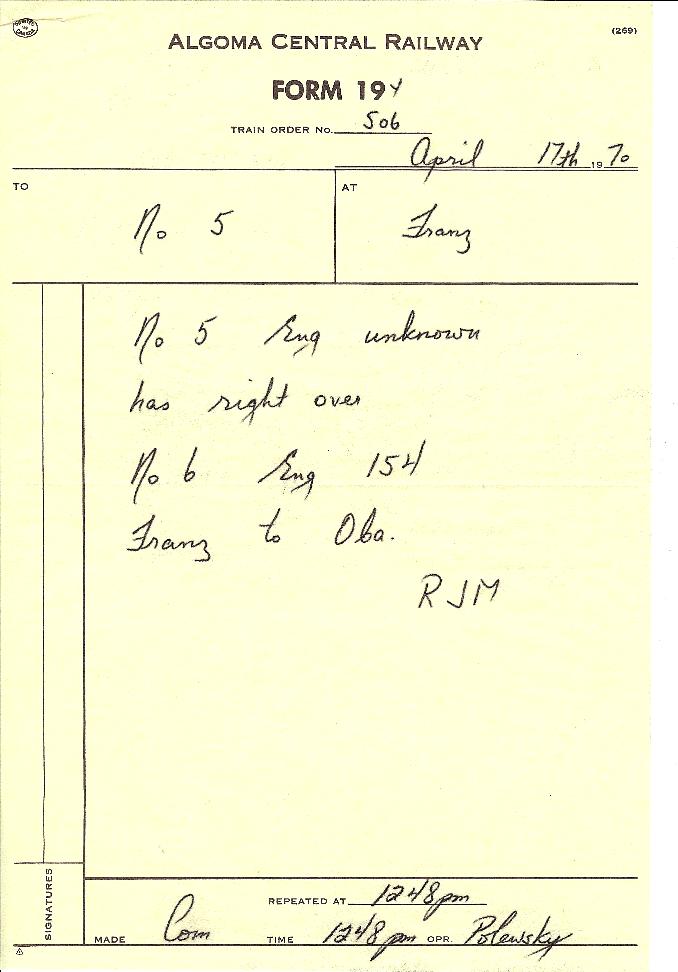 (269)
ALGOMA CENTRAL RAILWAY
FORM 19 Y
TRAIN ORDER NO. 506
April 17th 1970
TO No 5 AT Franz
No 5 Eng unknown
has right over
No 6 Eng 154
Franz to Oba.
RJM
SIGNATURES
REPEATED AT 1248 pm
MADE Com TIME 1248 pm OPR. Polewsky